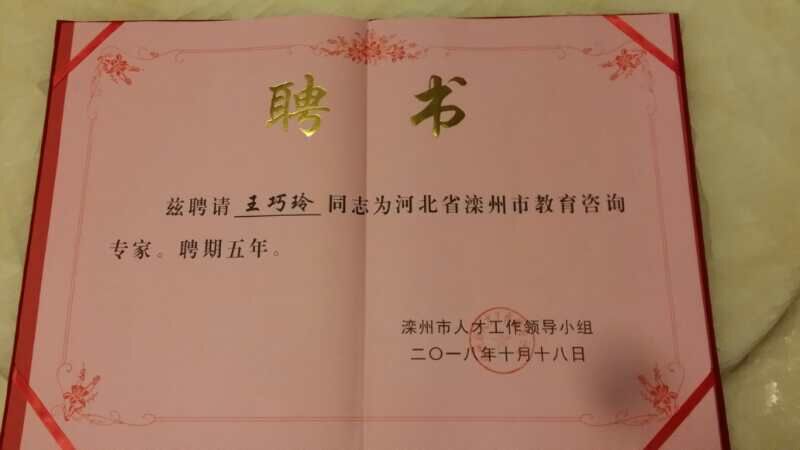 聘书
兹聘请王巧玲同志为河北省滦州市教育咨询
专家。聘期五年。
滦州市人才工作领导小组
二〇一八年十月十八日